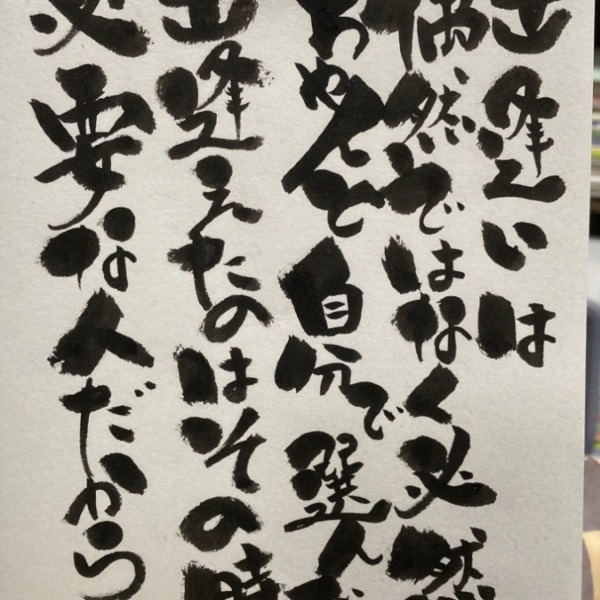 出逢いは
偶然ではなく必然
ちゃんと自分で選んだ
出逢えたのはその時
必要な人だから